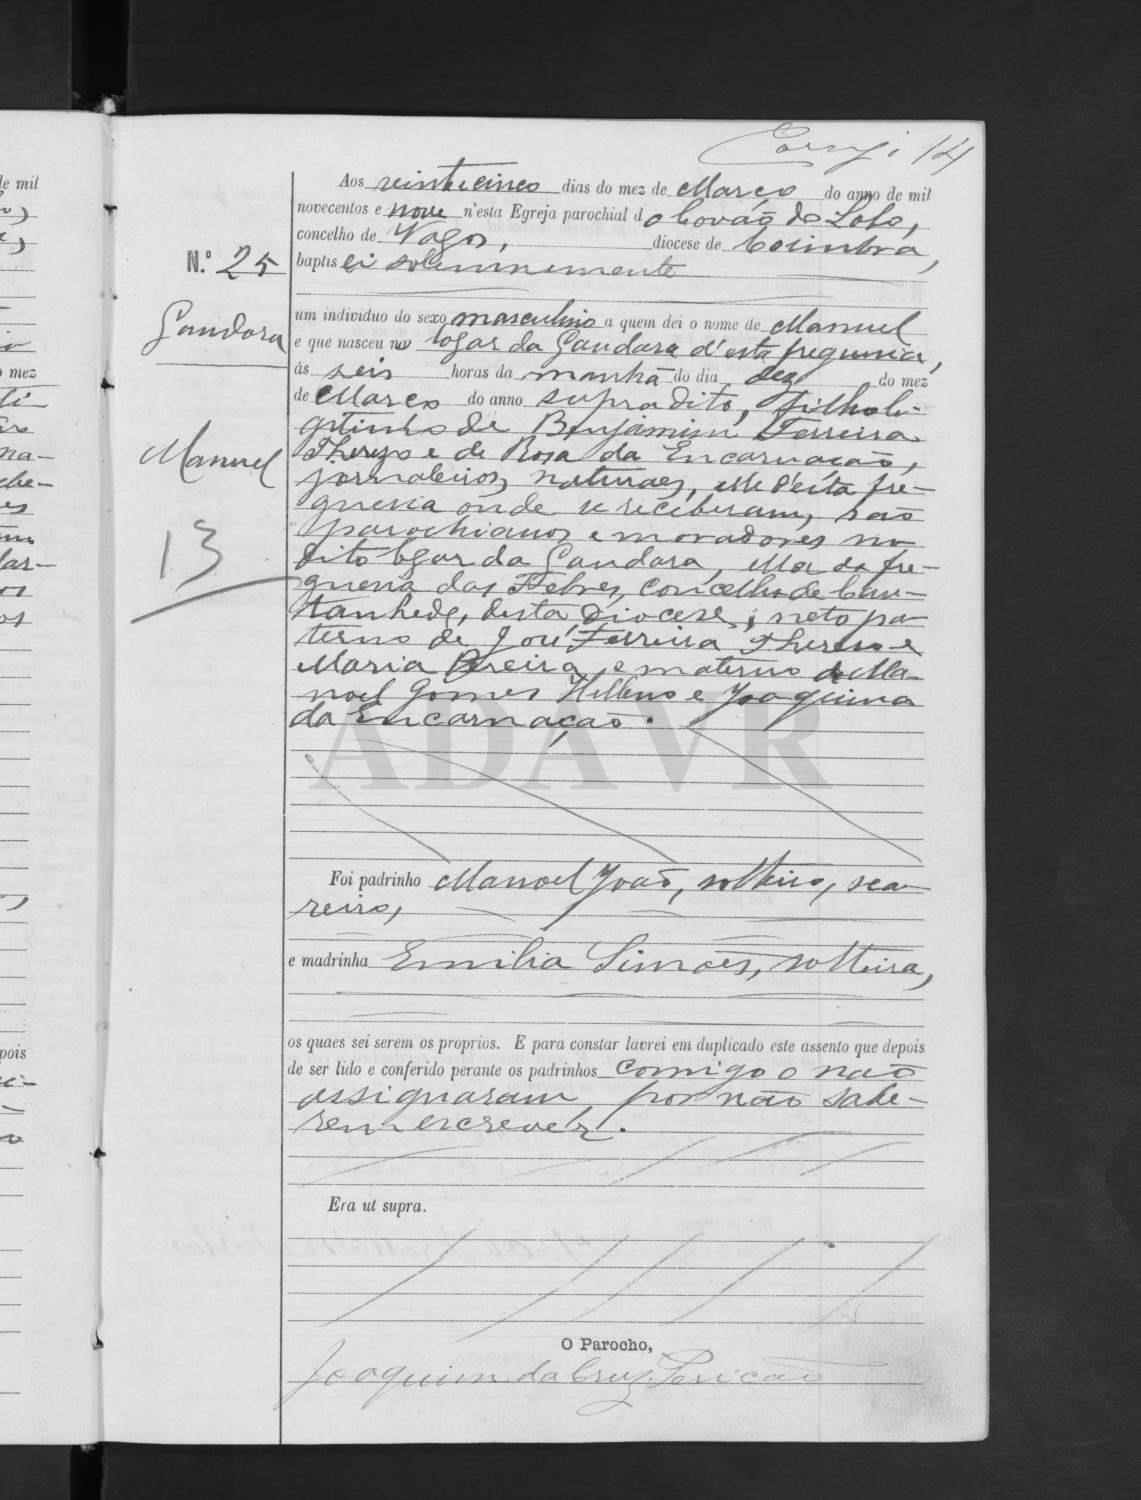 14
Aos vinte cinco dias do mez de Março do anno de mil
novecentos e nove n'esta Egreja parochial do Covão do Lobo,
concelho de Vagos, diocese de Coimbra,
N.º 25
baptisei solemnemente
um individuo do sexo masculino a quem dei o nome de Manuel
Gandara
e que nasceu no logar da Gandara d'esta freguesia,
ás seis horas da manhã do dia dez do mez
de Março do anno supradito, filho le-
gitimo de Benjamim Ferreira
Manuel
Thereso e de Rosa da Encarnação,
jornaleiros, naturaes, elle d'esta fre-
guesia onde se receberam, são
parochianos e moradores no
13
dito logar da Gandara, ella da fre-
guesia das Febres, concelho de Can-
tanhede, desta Diocese; neto pa-
terno de José Ferreira Thereso e
Maria Pereira e materno de Ma-
noel Gomes e Joaquina
da Encarnação.
ADAVR
Foi padrinho Manoel João, solteiro, sea-
reiro,
e madrinha Emilia Simões, solteira,
os quaes sei serem os proprios. E para constar lavrei em duplicado este assento que depois
de ser lido e conferido perante os padrinhos comigo o não
assignaram por não sabe-
rem escrever.
Era ut supra.
O Parocho,
Joaquim da Cruz Pericão